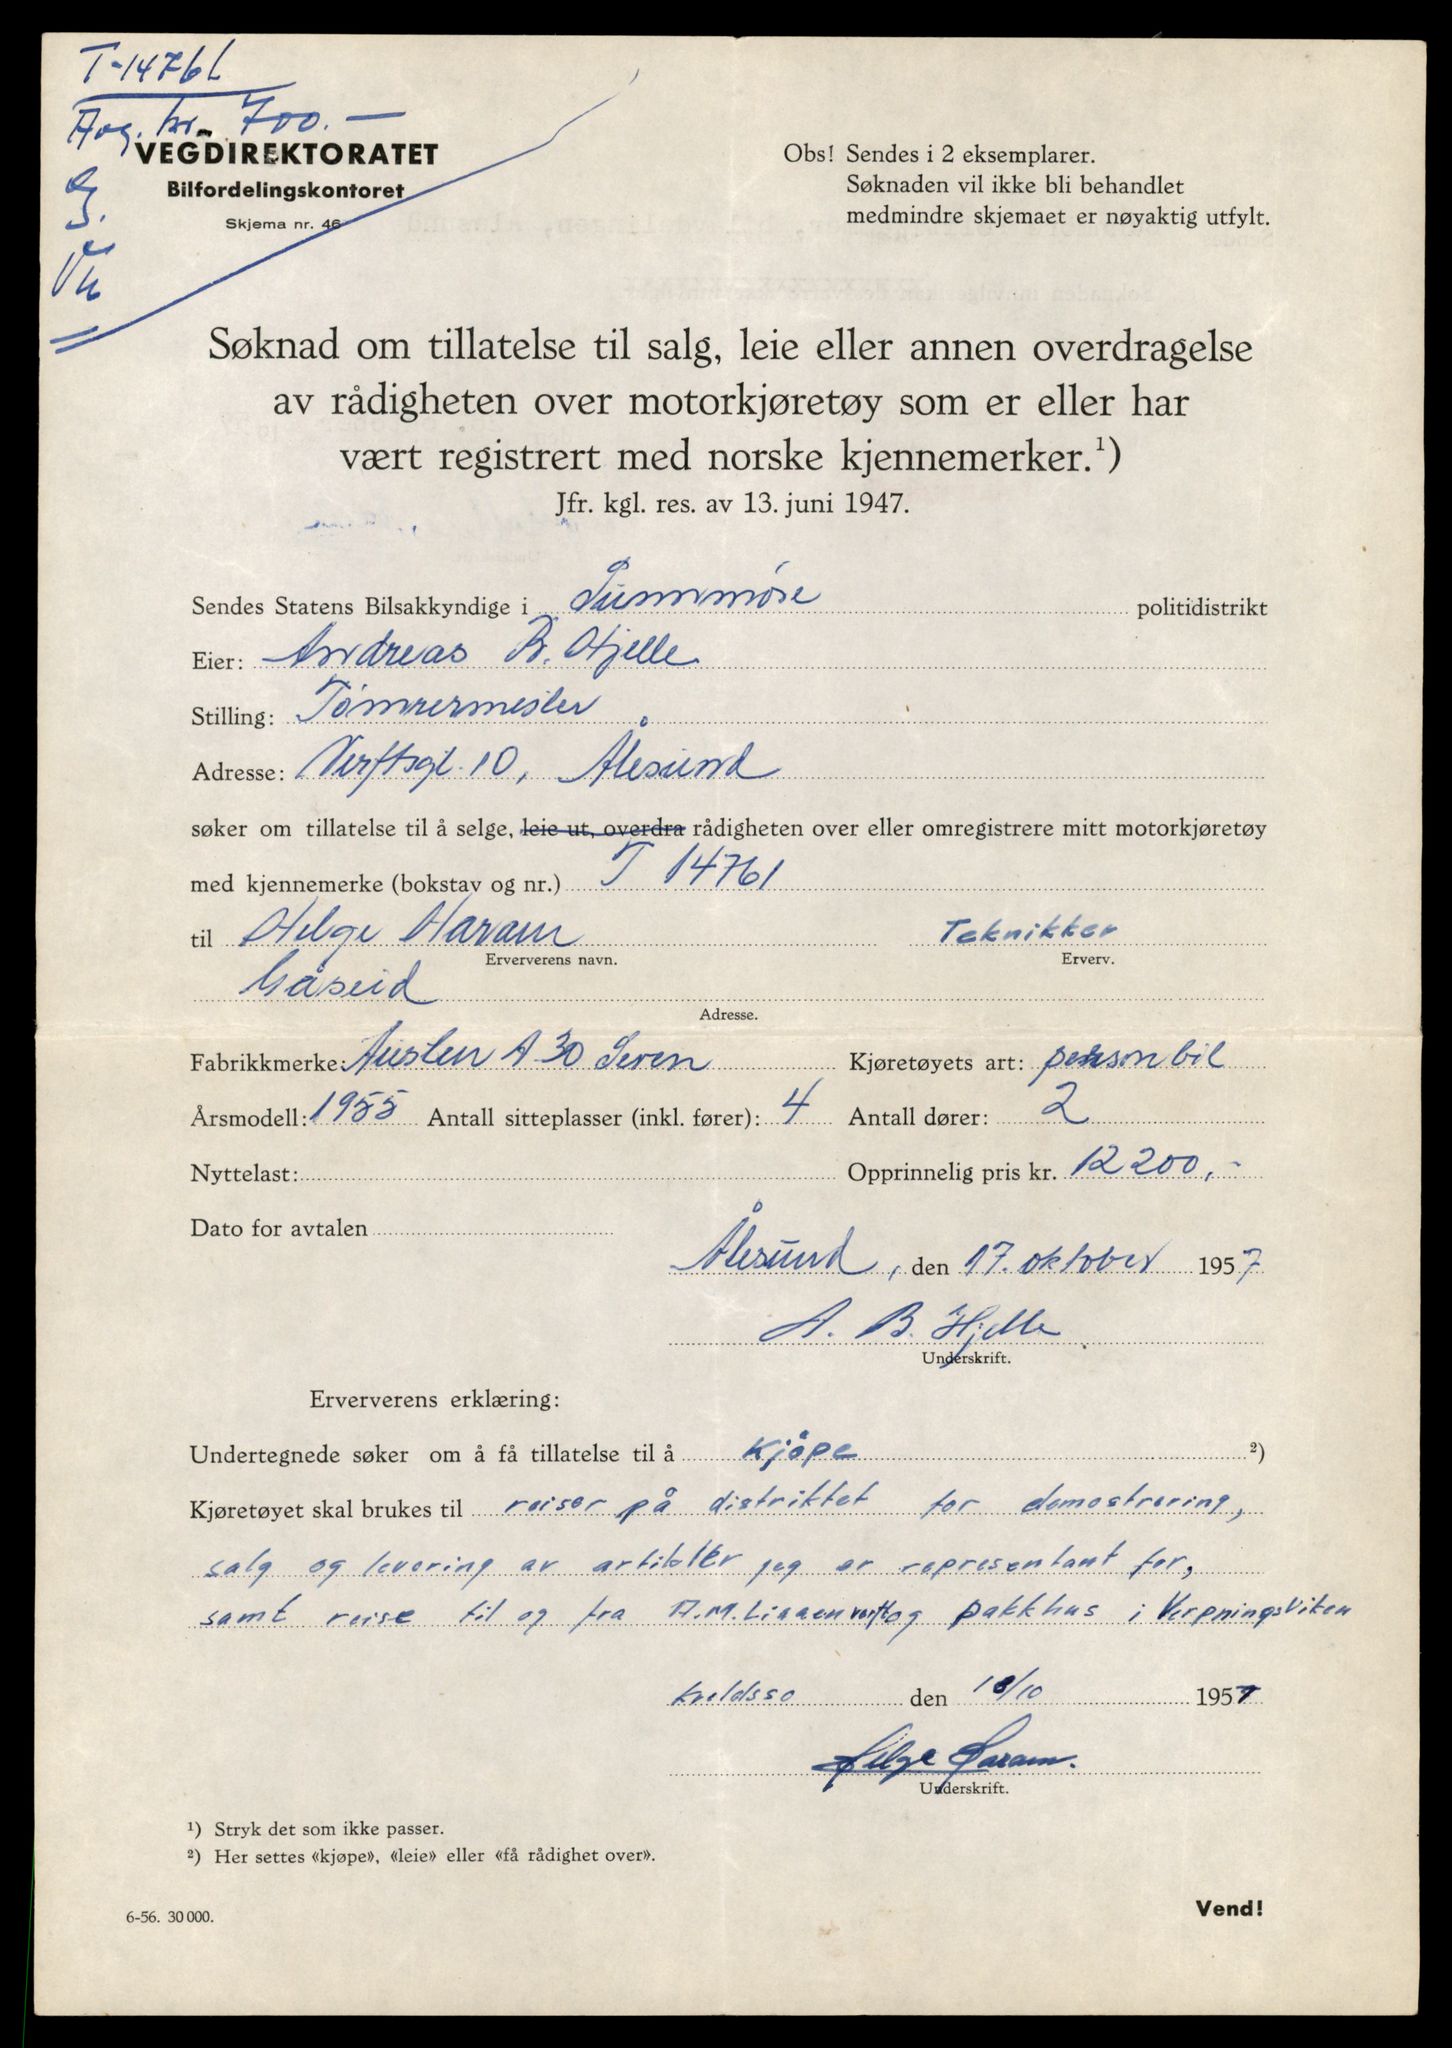 T-14761
Avg. kr. 700.-
VEGDIREKTORATET
Bilfordelingskontoret
Skjema nr. 46
Obs! Sendes i 2 eksemplarer.
Søknaden vil ikke bli behandlet
medmindre skjemaet er nøyaktig utfylt.
Søknad om tillatelse til salg, leie eller annen overdragelse
av rådigheten over motorkjøretøy som er eller har
vært registrert med norske kjennemerker.¹)
Jfr. kgl. res. av 13. juni 1947.
Sendes Statens Bilsakkyndige i Sunnmøre politidistrikt
Eier: Andreas B. Hjelle
Stilling: Tømrermester
Adresse: Verftsgt. 10, Ålesund
søker om tillatelse til å selge, leie ut, overdra rådigheten over eller omregistrere mitt motorkjøretøy
med kjennemerke (bokstav og nr.) T 14761
til Helge Haram Teknikker
Erververens navn. Erverv.
Gåseid
Adresse.
Fabrikkmerke: Austen A 30 Seven Kjøretøyets art: personbil
Årsmodell: 1955 Antall sitteplasser (inkl. fører): 4 Antall dører: 2
Nyttelast: Opprinnelig pris kr. 12200,-
Dato for avtalen
Ålesund, den 17. oktober 1957
A. B. Hjelle
Underskrift.
Erververens erklæring:
Undertegnede søker om å få tillatelse til å kjøpe ²)
Kjøretøyet skal brukes til reiser på distriktet for demostrering,
salg og levering av artikler jeg er representant for,
samt reise til og fra A.M. Liaaen verft og pakkhus i Verpningsviken
den 18/10 1957
Helge Haram.
Underskrift.
¹) Stryk det som ikke passer.
²) Her settes «kjøpe», «leie» eller «få rådighet over».
6-56. 30 000.
Vend!